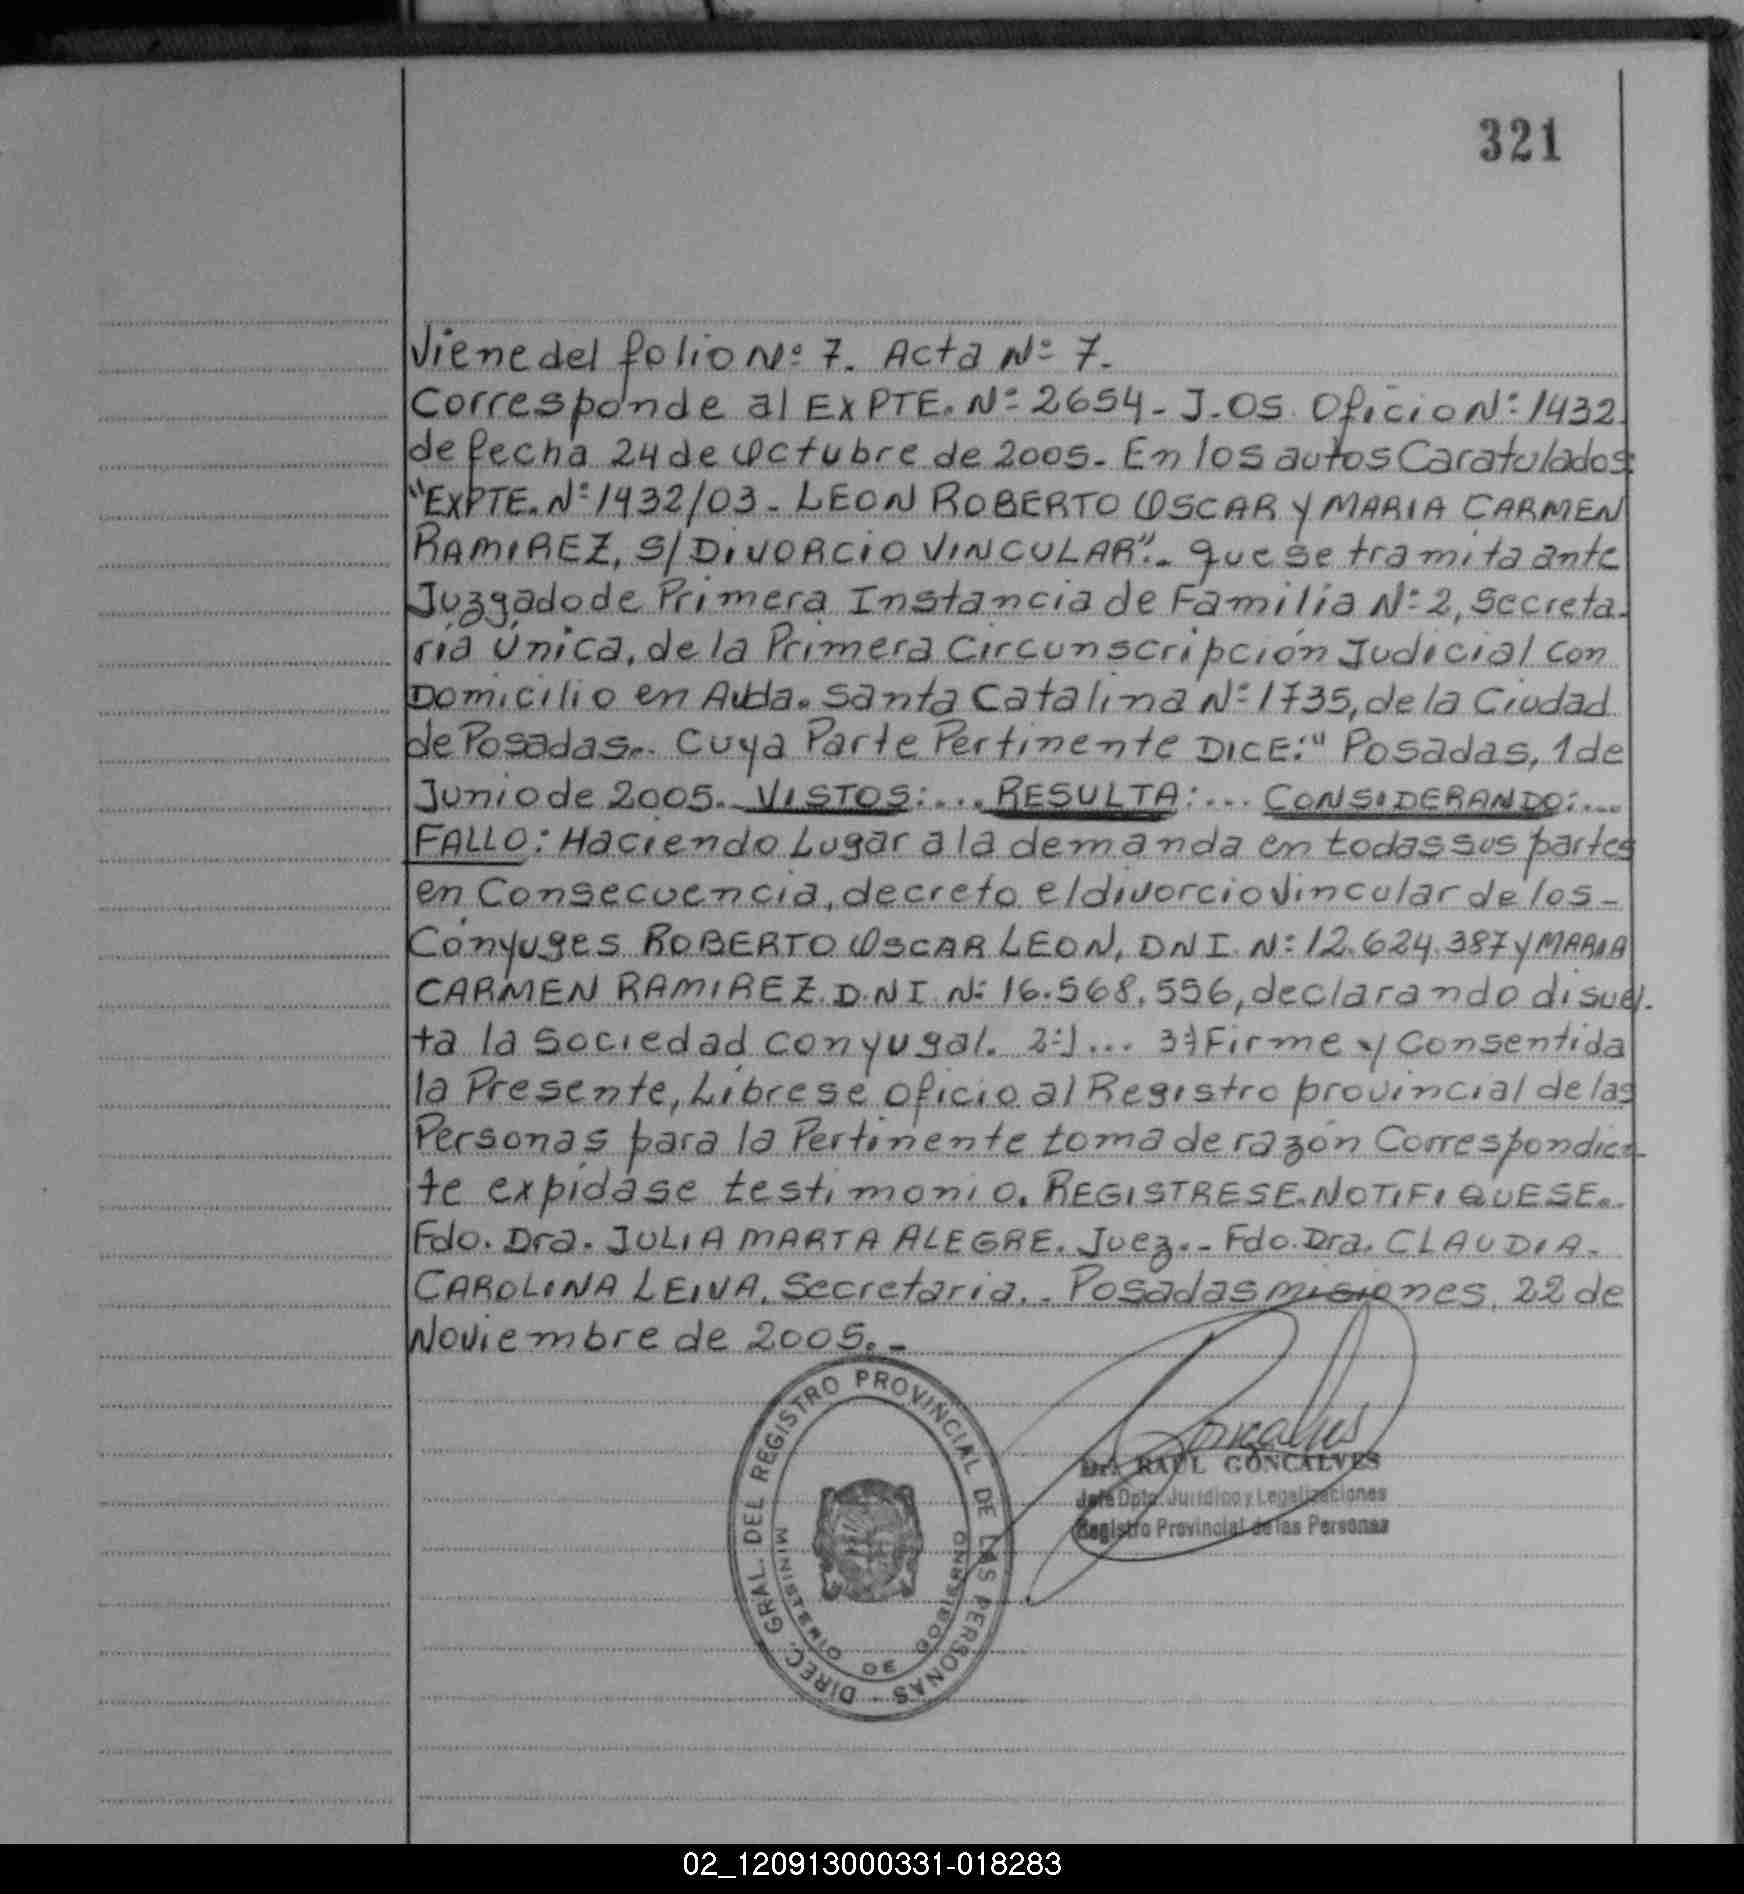 321
Viene del folio Nº 7. Acta Nº 7.
Corresponde al EXPTE. Nº 2654- J-05 Oficio Nº 1432.
de fecha 24 de Octubre de 2005.- En los autos Caratulados:
"EXPTE. Nº 1432/03 - LEON ROBERTO OSCAR Y MARIA CARMEN
RAMIREZ, S/DIVORCIO VINCULAR".- que se tramita ante
Juzgado de Primera Instancia de Familia Nº 2, Secreta-
ria Única, de la Primera Circunscripción Judicial con
Domicilio en Avda. Santa Catalina Nº 1735, de la Ciudad
de Posadas.. Cuya Parte Pertinente DICE:" Posadas, 1 de
Junio de 2005. VISTOS:... RESULTA:... CONSIDERANDO:...
FALLO: Haciendo Lugar a la demanda en todas sus partes
en Consecuencia, decreto el divorcio Vincular de los-
Cónyuges ROBERTO OSCAR LEON, DNI. Nº 12.624.387 y MARIA
CARMEN RAMIREZ. D.N.I. Nº 16.568.556, declarando disuel-
ta la Sociedad conyugal. 2º)... 3º) Firme y Consentida
la Presente, Líbrese oficio al Registro provincial de las
Personas para la Pertinente toma de razón Correspondien-
te expídase testimonio. REGISTRESE. NOTIFIQUESE..
Fdo. Dra. JULIA MARTA ALEGRE. Juez.- Fdo. Dra. CLAUDIA-
CAROLINA LEIVA. Secretaria.- Posadas misiones, 22 de
Noviembre de 2005.-
DIREC. GRAL. DEL REGISTRO PROVINCIAL DE LAS PERSONAS -
MINISTERIO DE GOBIERNO
Goncalves
Dr. RAUL GONCALVES
Jefe Dpto. Jurídico y Legalizaciones
Registro Provincial de las Personas
02_120913000331-018283